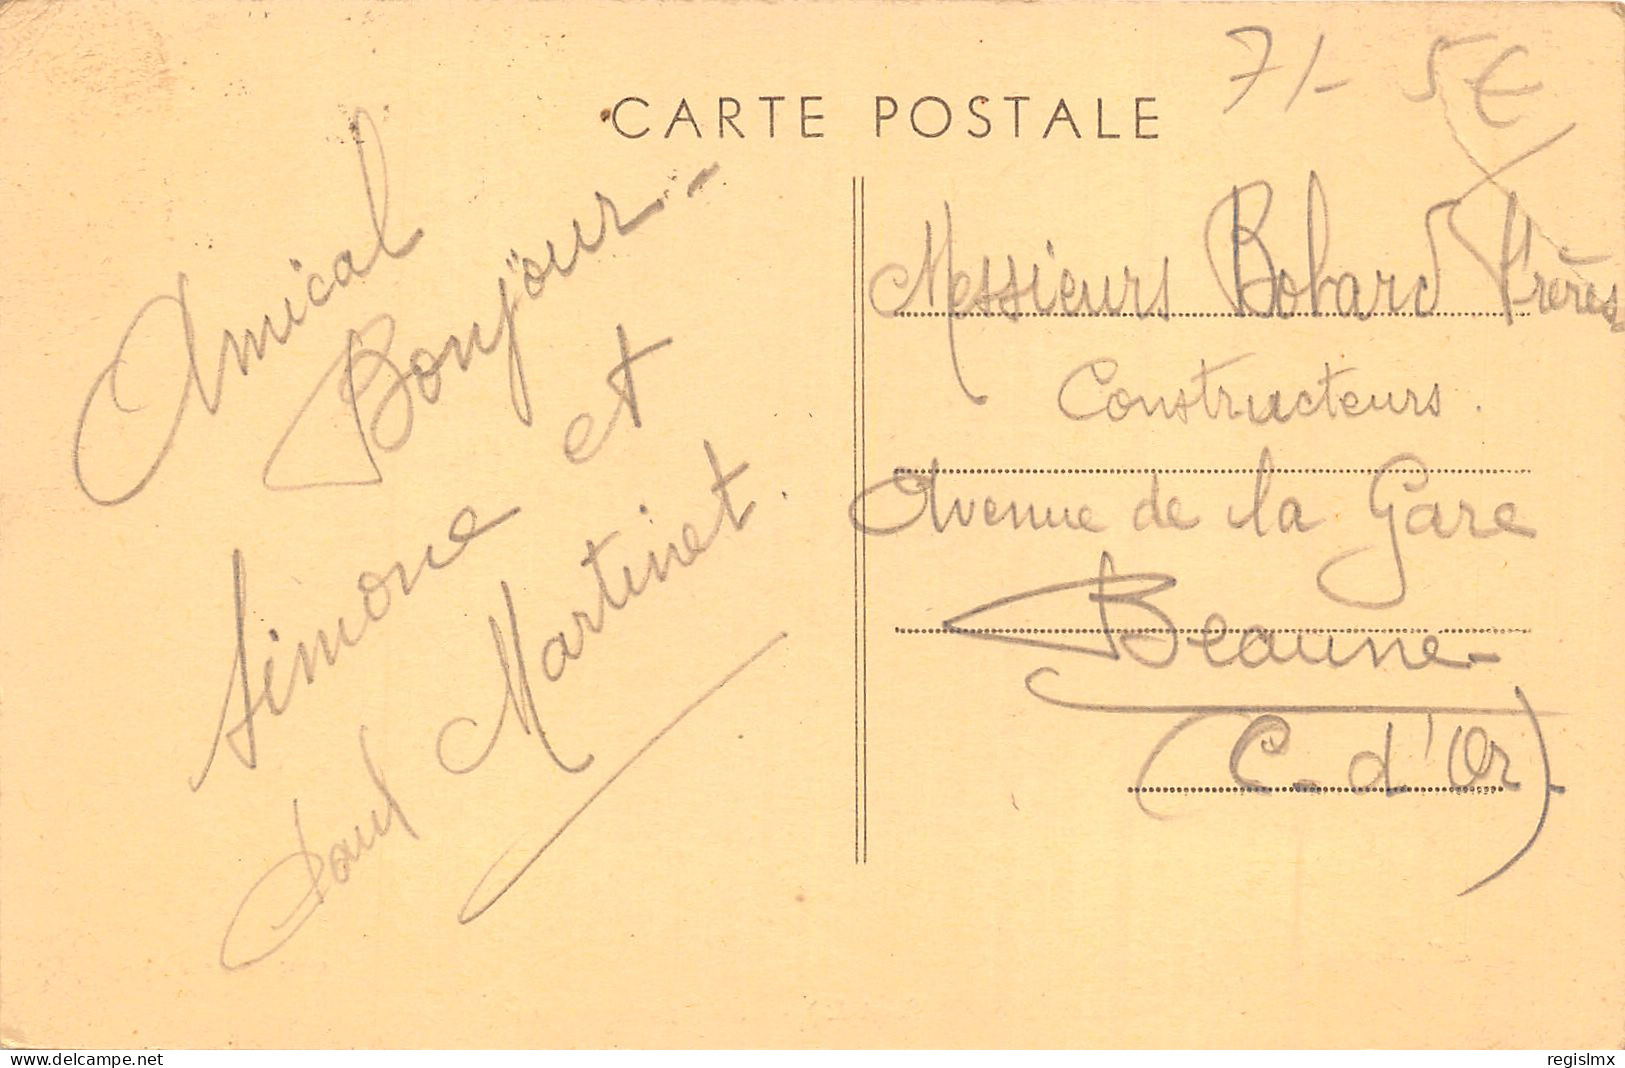 7/- 5€
CARTE POSTALE
Amical
Bonjour -
Simone et
Paul Martinet.
Messieurs Bobard Frères
Constructeurs.
Avenue de la Gare
Beaune -
(C. d'Or)
www.delcampe.net
regislmx